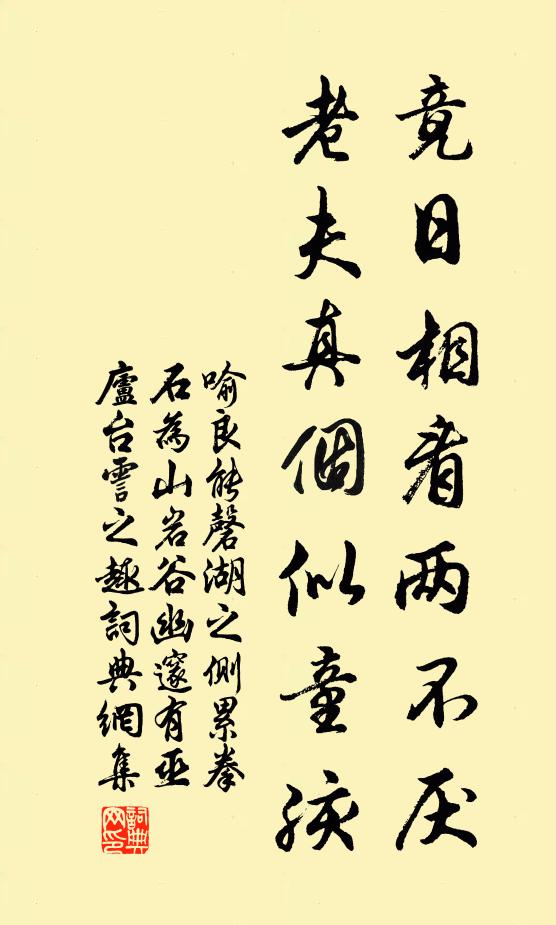 竟日相看两不厌
老夫真個似童孩
喻良能磬湖之側累拳
石為山岩谷幽邃有巫
廬台雪之趣詞典網集
詞典
网印